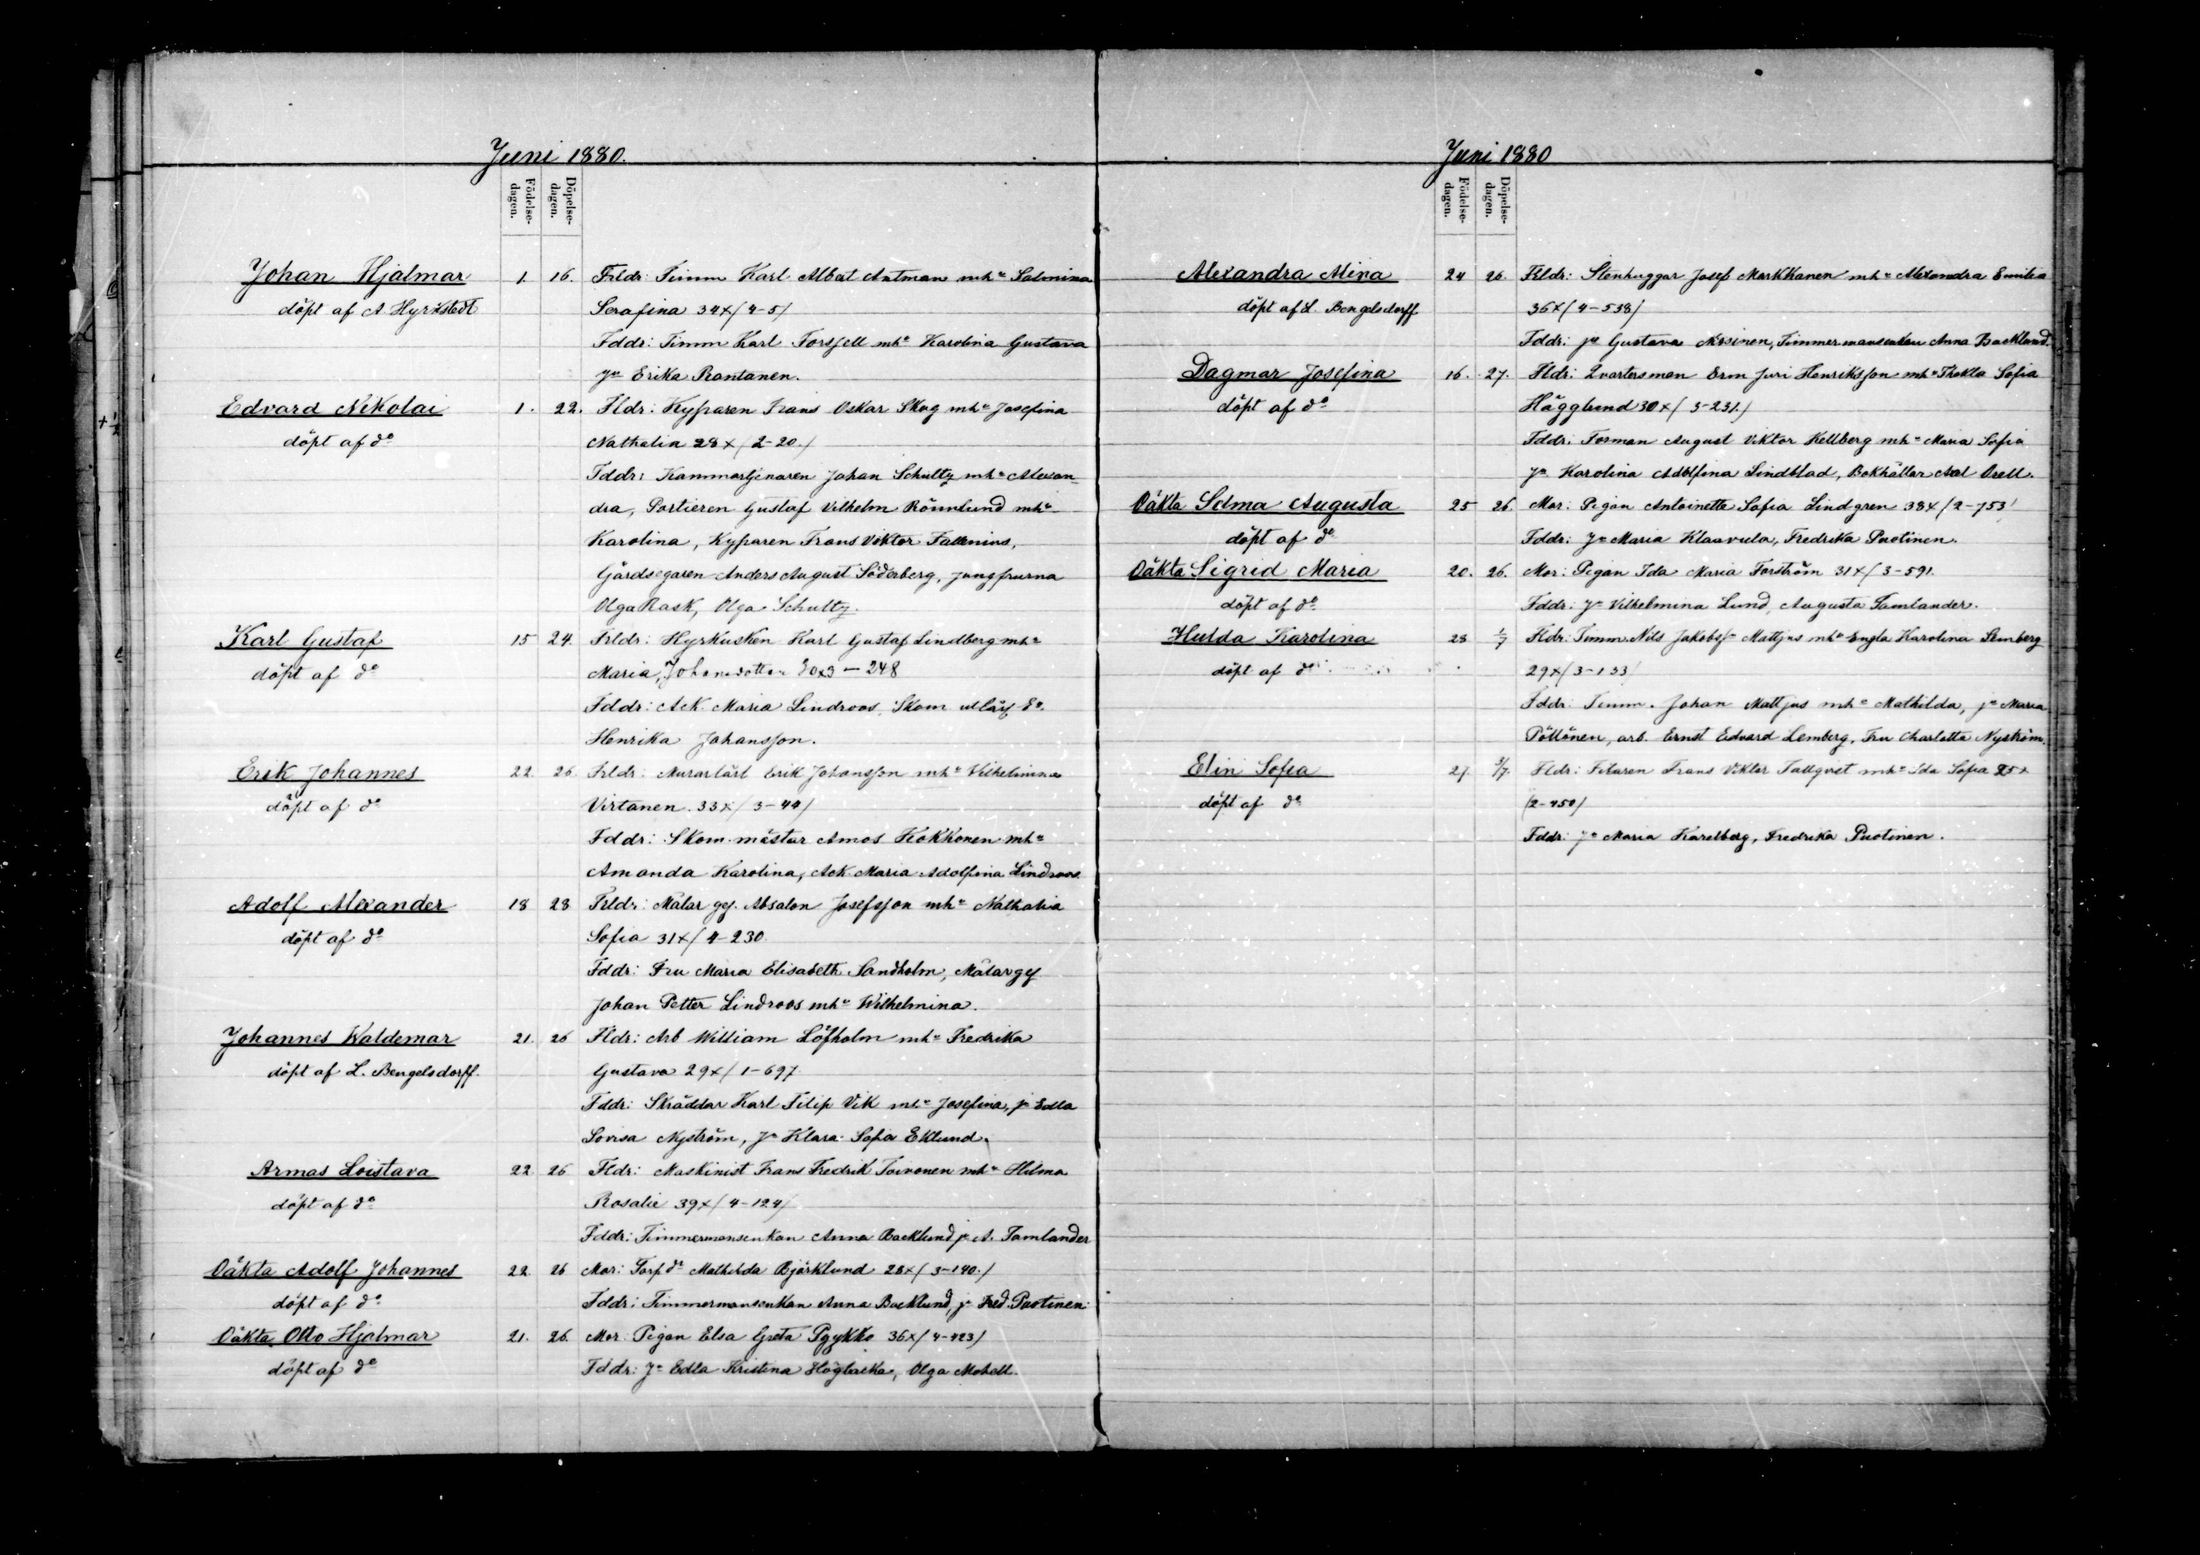 Juni 1880.
Födelse-
dagen.
Döpelse-
dagen.
Johan Hjalmar 1. 16. Frldr: Timm Karl Albert Antman mhu Salomina
döpt af A Hyrkstedt Serafina 34x/4-5/
Fddr: Timm Karl Forssell mhu Karolina Gustava
Ju Erika Rantanen.
Edvard Nikolai 1. 22. Fldr: Kyparen Frans Oskar Skog mhu Josefina
döpt af do Nathalia 28x/2-20./
Fddr: Kammartjenaren Johan Schultz mhu Alexan-
dra, Portieren Gustaf Vilhelm Rönnlund mhu
Karolina, Kyparen Frans Viktor Fallenius,
Gårdsegaren Anders August Söderberg, jungfrurna
Olga Rask, Olga Schultz.
Karl Gustaf 15 24. Frldr: Hyrkusken Karl Gustaf Lindberg mhu
döpt af do Maria, Johansdotter 30x3-248
Fddr: Ack. Maria Lindroos, Skom utlärg Eo.
Henrika Johansson.
Erik Johannes 22. 26. Frldr: Murarlärl Erik Johansson mhu Vilhelmina
döpt af do Virtanen. 33x/3-44/
Fddr: Skom. mästar Amos Kokkonen mhu
Amanda Karolina, Ack. Maria Adolfina Lindroos
Adolf Alexander 18 28 Frldr: Målar ges. Absalon Josefsson mhu Nathalia
döpt af do Sofia 31x/4-230
Fddr: Fru Maria Elisabeth Sandholm, Målar ges
Johan Petter Lindroos mhu Wilhelmina.
Johannes Waldemar 21. 26 Fldr: Arb William Löfholm mhu Fredrika
döpt af L. Bengelsdorff. Gustava 29x/1-697
Fddr: Skräddar Karl Filip Vik mhu Josefina, ju Edla
Lovisa Nyström, Ju Klara Sofia Eklund.
Armas Loistava 22. 26 Fldr: Maskinist Frans Fredrik Toivonen mhu Hilma
döpt af do Rosalie 39x/4-124/
Fddr: Timmermansenkan Anna Backlund ju A. Tamlander
Oäkta Adolf Johannes 22 26 Mor: Torp do Mathilda Björklund 28x/3-140./
döpt af do Fddr: Timmermansenkan Anna Backlund, ju Fred. Puotinen
Oäkta Otto Hjalmar 21. 26. Mor: Pigan Elsa Greta Pyykkö 36x/4-423/
döpt af do Fddr: Ju Edla Kristina Högbacka, Olga Mohell.
Juni 1880
Födelse-
dagen.
Döpelse-
dagen.
Alexandra Alina 24 26. Frldr: Stenhuggar Josef Markkanen mhu Alexandra Emilia
döpt af L. Bengelsdorff 36x/4-538/
Fddr: ju Gustava Mosinen, Timmermansenkan Anna Backlund.
Dagmar Josefina 16. 27. Fldr: Qvartersman Erm Juri Henriksson mhu Thekla Sofia
döpt af do Hägglund 30x/3-231./
Fddr: Forman August Viktor Kellberg mhu Maria Sofia
Ju Karolina Adolfina Lindblad, Bokhållar Axel Orell.
Oäkta Selma Augusta 25 26. Mor: Pigan Antoinette Sofia Lindgren 38x/2-753/
döpt af do Fddr: Ju Maria Klaavula, Fredrika Puotinen.
Oäkta Sigrid Maria 20. 26. Mor: Pigan Ida Maria Forström 31x/3-591.
döpt af do Fddr: Ju Vilhelmina Lund, Augusta Tamlander.
Hulda Karolina 28 1/7 Fldr: Timm. Nils Jakobss Mattjus mhu Engla Karolina Stenberg
döpt af do 29x/3-133/
Fddr: Timm. Johan Mattjus mhu Mathilda, ju Maria
Pöllönen, arb. Ernst Edvard Lemberg, Fru Charlotta Nyström.
Elin Sofia 27 3/7. Fldr: Filaren Frans Viktor Tallqvist mhu Ida Sofia 25x
döpt af do /2-450/
Fddr: Ju Maria Karelberg, Fredrika Puotinen.